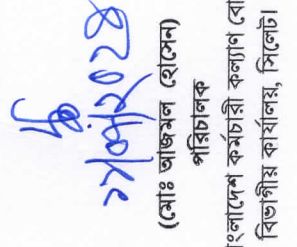 ১৭/০৭/২০২৪
(মোঃ আজমল হোসেন)
পরিচালক
বাংলাদেশ কর্মচারী কল্যাণ বো
বিভাগীয় কার্যালয়, সিলেট।